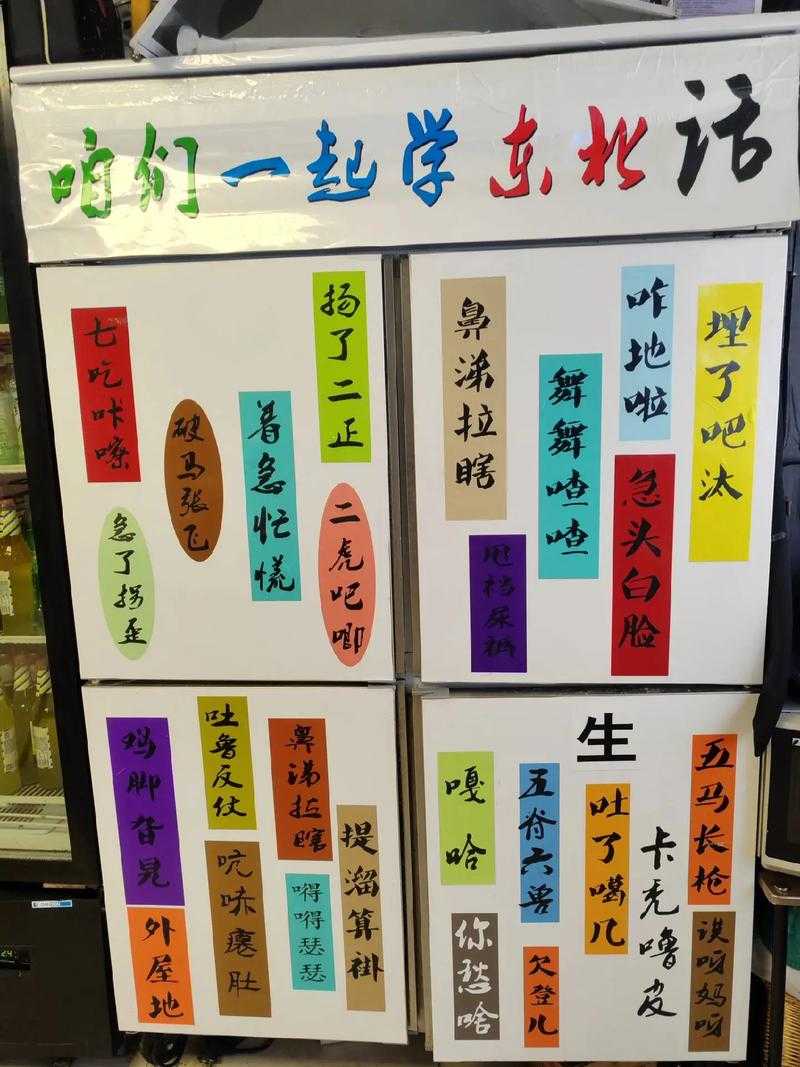 咱们一起学东北话
七吃咔嚓
破马张飞
着急忙慌
扬了二正
急了拐歪
二虎吧唧
鼻涕拉瞎
舞舞喳喳
咋地啦
埋了吧汰
甩裆尿裤
急头白脸
鸡脚旮旯
吐鲁反仗
鼻涕拉瞎
提溜算褂
外屋地
吭哧瘪肚
嘚嘚瑟瑟
生
嘎哈
五脊六兽
吐了噶几
卡秃噜皮
五马长枪
你愁啥
欠登儿
诶呀妈呀